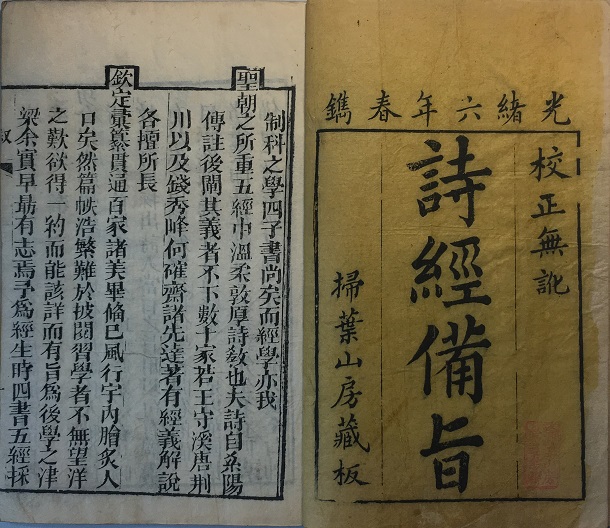 光緒六年春鐫
校正無訛
詩經備旨
掃葉山房藏板
制科之學四子書尚矣而經學亦我
聖朝之所重五經中溫柔敦厚詩敎也夫詩自紫陽
傳註後闡其義者不下數十家若王守溪唐荆
川以及錢秀峰何確齋諸先達著有經義解說
各擅所長
欽定彙纂貫通百家諸美畢偹已風行宇內膾炙人
口矣然篇帙浩繁難於披閱習學者不無望洋
之歎欲得一約而能該詳而有旨爲後學之津
梁余實早最有志焉予爲經生時四書五經採